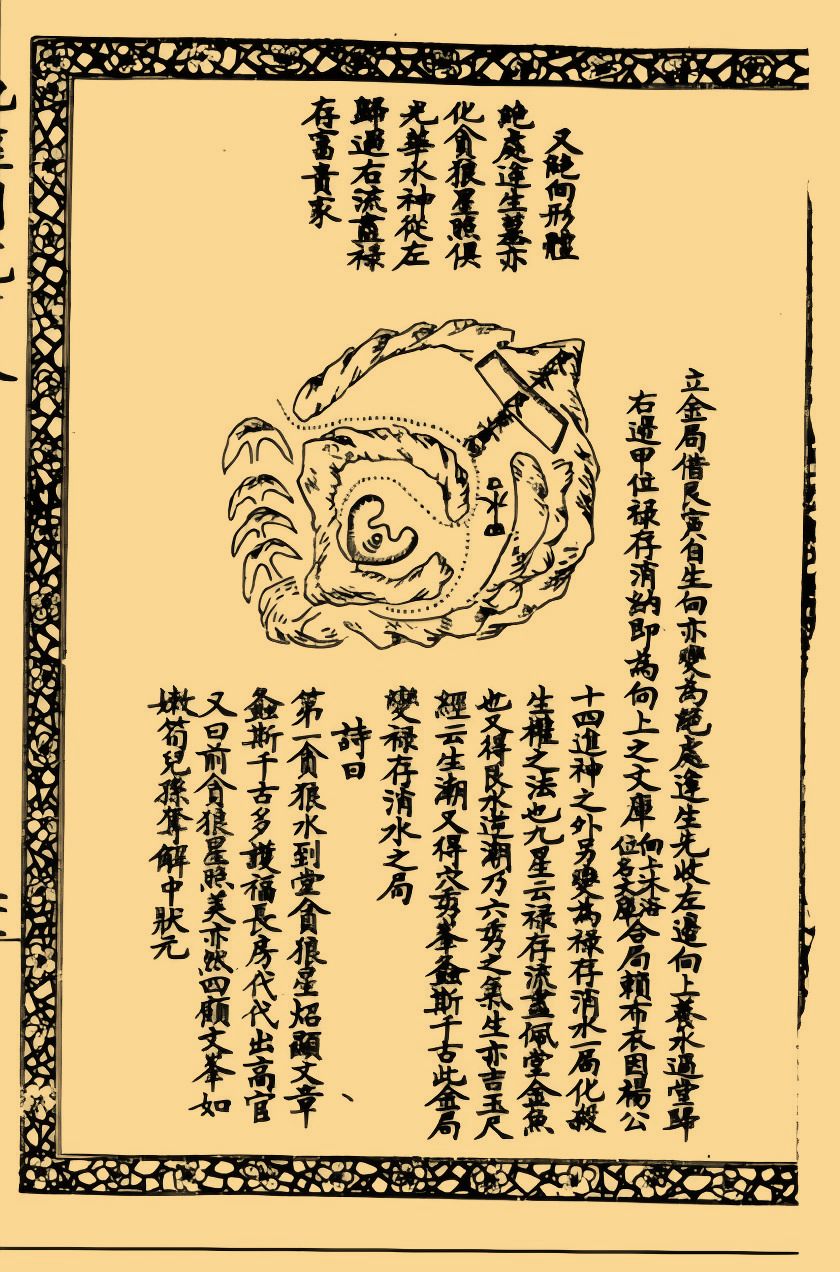 又絶向形體
絶處逢生墓亦
化貪狼星照俱
光華水神從左
歸過右流盡祿
存富貴家
立金局借艮寅自生向亦變為絶處逢生先收左邊向上養水過堂歸
右邊甲位祿存消納即為向上之文庫向上沐浴位名文庫合局賴布衣因楊公
十四進神之外另變為祿存消水一局化殺
生權之法也九星云祿存流盡佩堂金魚
也又得艮水造潮乃六秀之氣生亦吉玉尺
經云生潮又得六秀峯螽斯千古此金局
變祿存消水之局
詩曰
第一貪狼水到堂貪狼星炤顯文章
螽斯千古多護福長房代代出高官
又曰前貪狼星照美亦然四顧文峯如
嫩筍兒孫奪解中狀元
甲水口